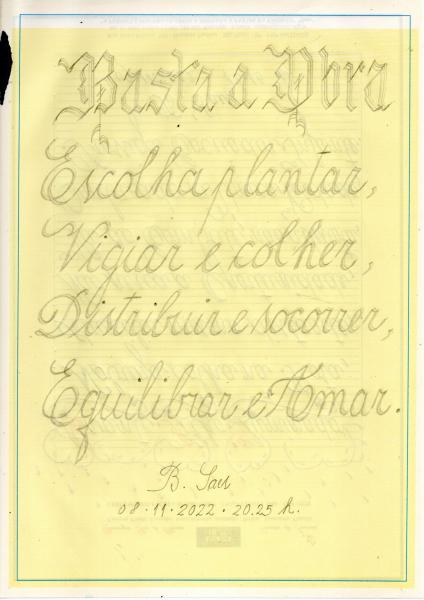 Basta a Obra
Escolha plantar,
Vigiar e colher,
Distribuir e socorrer,
Equilibrar e Amar.
B.
08.11.2022.20.25 h.